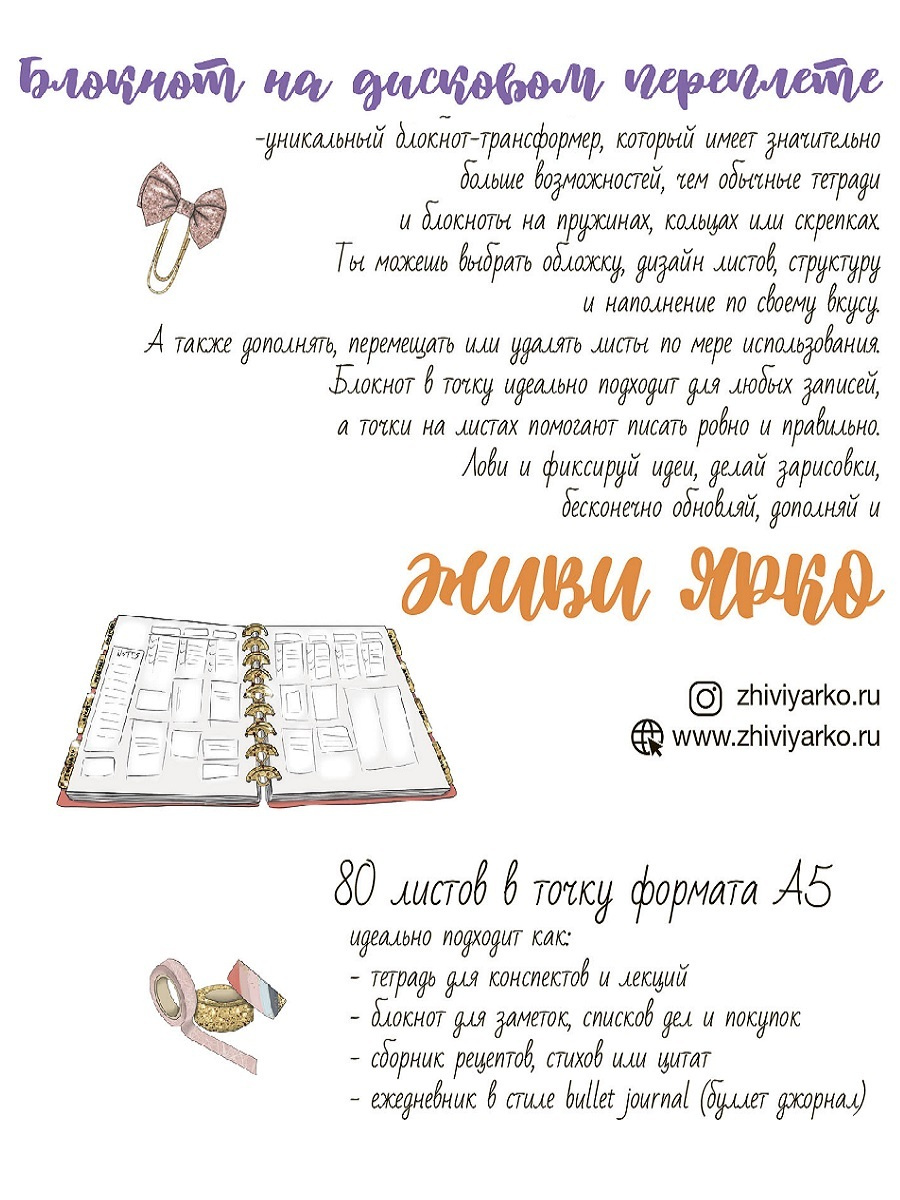 Блокнот на дисковом переплете
-уникальный блокнот-трансформер, который имеет значительно
больше возможностей, чем обычные тетради
и блокноты на пружинах, кольцах или скрепках.
Ты можешь выбрать обложку, дизайн листов, структуру
и наполнение по своему вкусу.
А также дополнять, перемещать или удалять листы по мере использования.
Блокнот в точку идеально подходит для любых записей,
а точки на листах помогают писать ровно и правильно.
Лови и фиксируй идеи, делай зарисовки,
бесконечно обновляй, дополняй и
живи ярко
NOTES
zhiviyarko.ru
www.zhiviyarko.ru
80 листов в точку формата А5
идеально подходит как:
- тетрадь для конспектов и лекций
- блокнот для заметок, списков дел и покупок
- сборник рецептов, стихов или цитат
- ежедневник в стиле bullet journal (буллет джорнал)